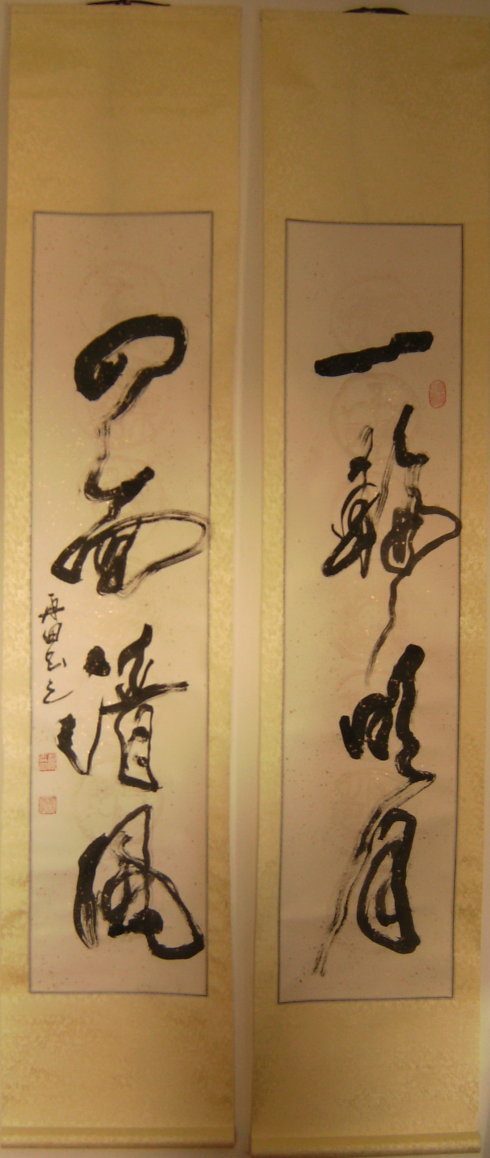 一輪明月
四面清風
再田書之